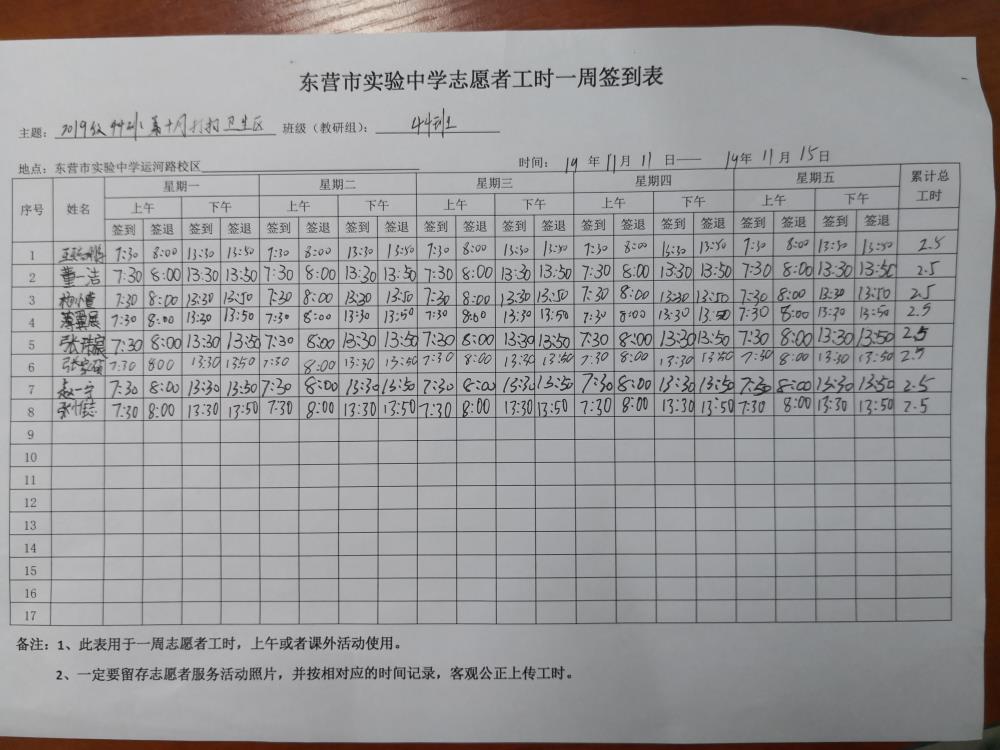 东营市实验中学志愿者工时一周签到表
主题： 2019级44班第十月打扫卫生区 班级（教研组）： 44班
地点：东营市实验中学运河路校区 时间： 19 年 11 月 11 日—— 19 年 11 月 15 日
序号 姓名 星期一 星期二 星期三 星期四 星期五 累计总工时
上午 下午 上午 下午 上午 下午 上午 下午 上午 下午
签到 签退 签到 签退 签到 签退 签到 签退 签到 签退 签到 签退 签到 签退 签到 签退 签到 签退 签到 签退
1 7:30 8:00 13:30 13:50 7:30 8:00 13:30 13:50 7:30 8:00 13:30 13:50 7:30 8:00 13:30 13:50 7:30 8:00 13:30 13:50 2.5
2 董一洁 7:30 8:00 13:30 13:50 7:30 8:00 13:30 13:50 7:30 8:00 13:30 13:50 7:30 8:00 13:30 13:50 7:30 8:00 13:30 13:50 2.5
3 7:30 8:00 13:30 13:50 7:30 8:00 13:30 13:50 7:30 8:00 13:30 13:50 7:30 8:00 13:30 13:50 7:30 8:00 13:30 13:50 2.5
4 薄翼展 7:30 8:00 13:30 13:50 7:30 8:00 13:30 13:50 7:30 8:00 13:30 13:50 7:30 8:00 13:30 13:50 7:30 8:00 13:30 13:50 2.5
5 7:30 8:00 13:30 13:50 7:30 8:00 13:30 13:50 7:30 8:00 13:30 13:50 7:30 8:00 13:30 13:50 7:30 8:00 13:30 13:50 2.5
6 7:30 800 13:30 13:50 7:30 8:00 13:30 13:50 7:30 8:00 13:30 13:50 7:30 8:00 13:30 13:50 7:30 8:00 13:30 13:50 2.5
7 赵一宁 7:30 8:00 13:30 13:50 7:30 8:00 13:30 13:50 7:30 8:00 13:30 13:50 7:30 8:00 13:30 13:50 7:30 8:00 13:30 13:50 2.5
8 7:30 8:00 13:30 13:50 7:30 8:00 13:30 13:50 7:30 8:00 13:30 13:50 7:30 8:00 13:30 13:50 7:30 8:00 13:30 13:50 2.5
9
10
11
12
13
14
15
16
17
备注：1、此表用于一周志愿者工时，上午或者课外活动使用。
2、一定要留存志愿者服务活动照片，并按相对应的时间记录，客观公正上传工时。